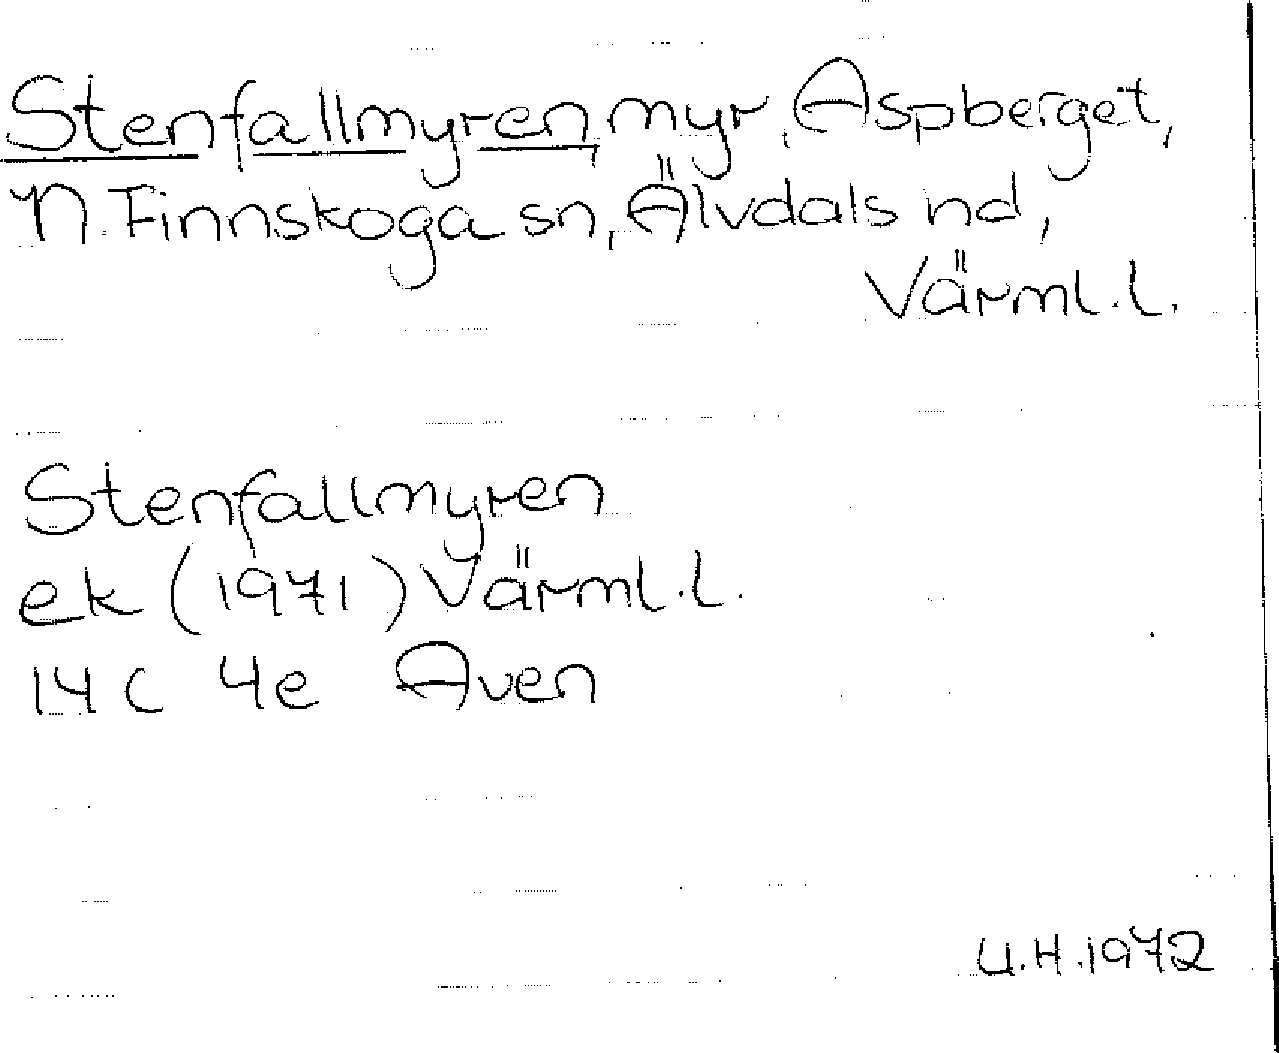 Stenfallmyren, myr, Aspberget,
N. Finnskoga sn, Älvdals hd,
Värml. l.
Stenfallmyren
ek (1971) Värml. l.
14 C 4e Aven
U.H. 1972